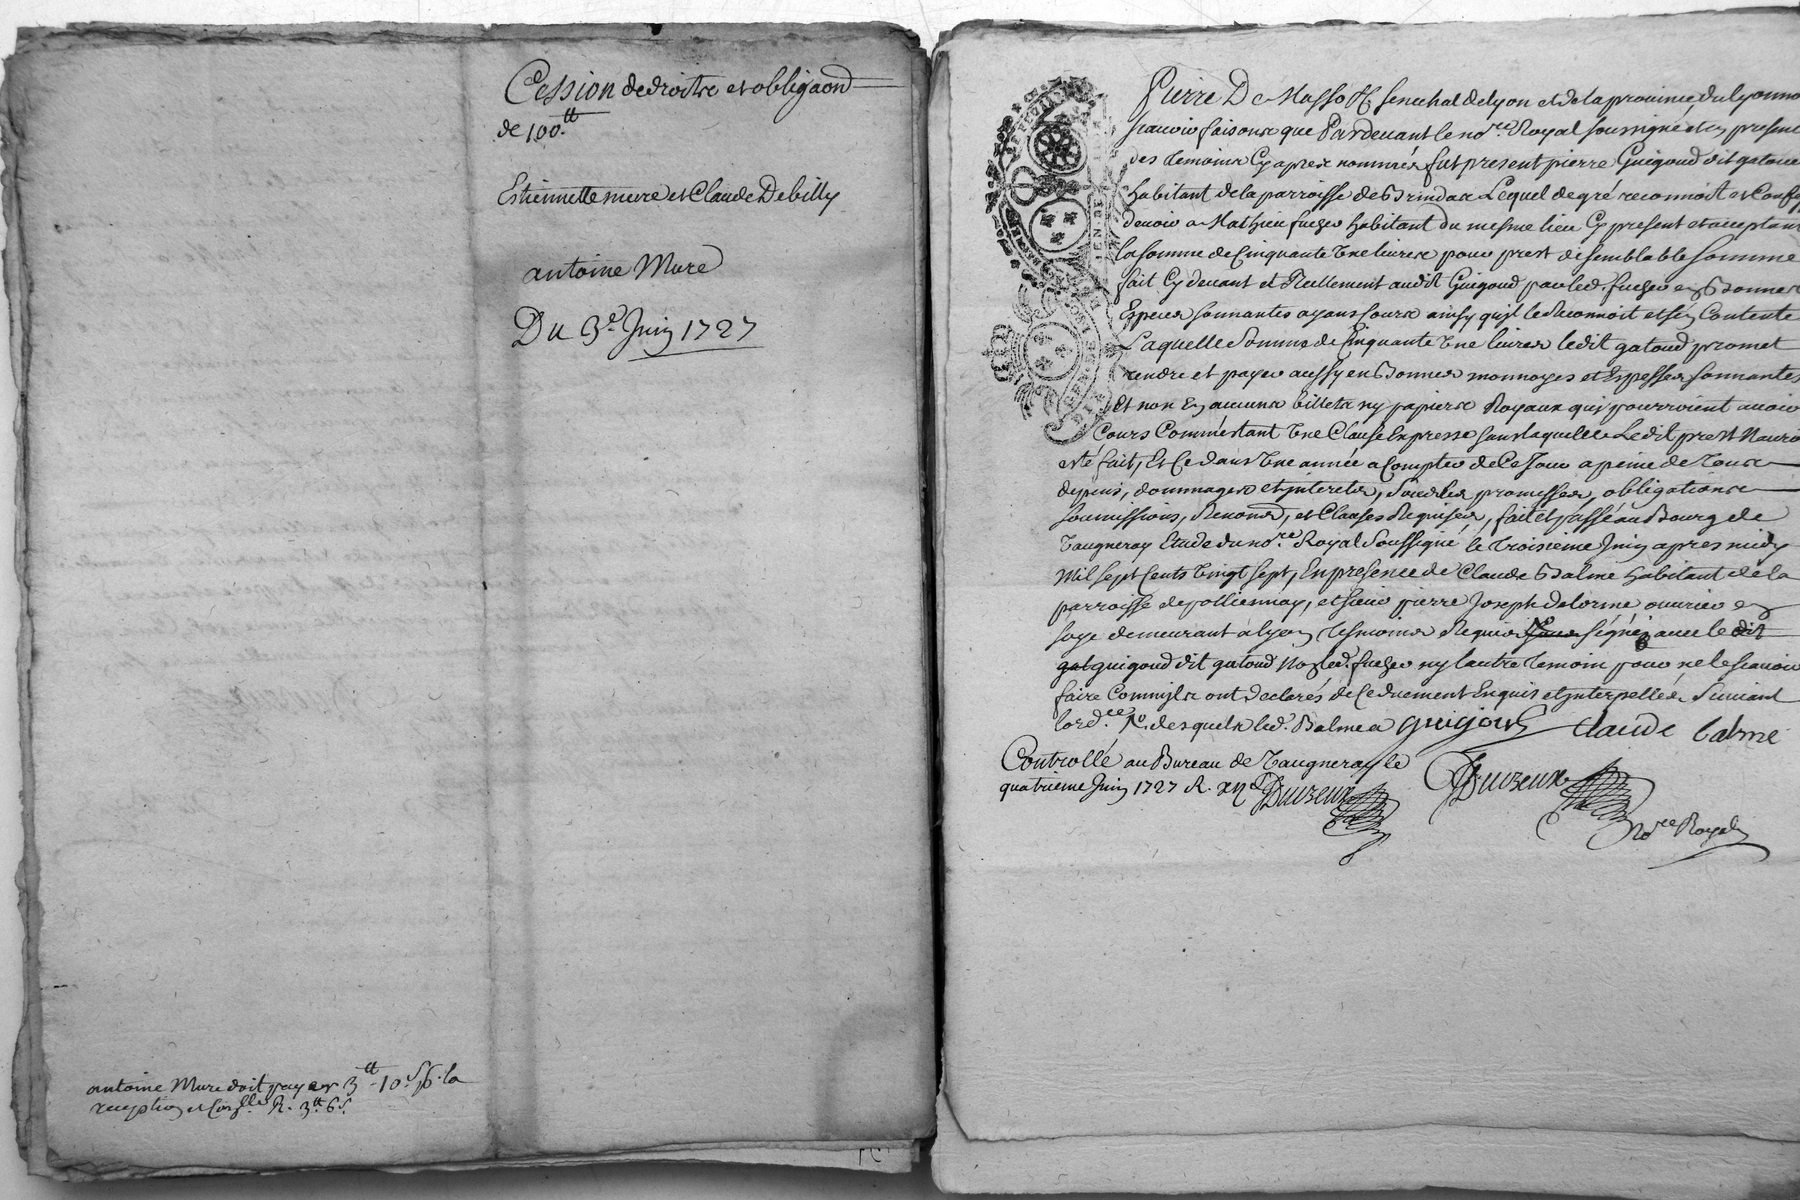 Cession de droits et obligaon
de 100.tt
Estiennette mure et Claude Debilly
antoine Mure
Du 3.e Juin 1727
antoine Mure doit payer 3tt-10.s p. la
reception et R. 3tt 6s.
Pierre De Masso &c senechal de lyon et de la province du lyonno
scavoir faisons que Pardevant le no.re Royal soussigné et en presenc
des temoins Cy apres nommés fut present pierre Guigoud dit gatoud
habitant de la parroisse de Brindas Lequel de gré reconnoit et Confes
devoir a Mathieu fuchez habitant du mesme lieu Cy present et acceptant
la somme de Cinquante Une livres pour prest de semblable somme
fait Cy devant et Reellement audit Guigoud par led. fuchez en Bonnes
Especes sonnantes ayans cours ainsy qu'il le Reconnoit et s'en Contente
Laquelle Somme de Cinquante Une livres ledit gatoud promet
rendre et payer aussy en Bonnes monnoyes et Espesses sonnantes
Et non En aucuns billets ny papiers Royaux qui pourroient avoir
Cours Comme estant Une Clause Expresse sans laquelle Ledit prest Nauroi
esté fait, Et Ce dans Une année a Compter de Ce Jour a peine de Tous
depens, dommages et interets, Sous les promesses, obligations
soumissions, Renons, et Clauses Requises, fait et passé au Bourg de
Vaugneray Etude du no.re Royal Soussigné le troisieme Juin apres midy
Mil sept Cents Vingt sept, En presence de Claude Balme habitant de la
parroisse de pollionnay, et sieur pierre Joseph delorme ouvrier en
soye demeurant a lyon tesmoins Requis signés avec le dit
guigoud dit gatoud Non led. fuchez ny l'autre temoin pour ne le scavoir
faire Comm'ils ont declarés de Ce duement Enquis et interpellés Suivant
lord.ce desquels led. Balme a guigoud Claude balme
Controllé au Bureau de Vaugneray le
quatrieme Juin 1727 R. xiis
No.re Royal